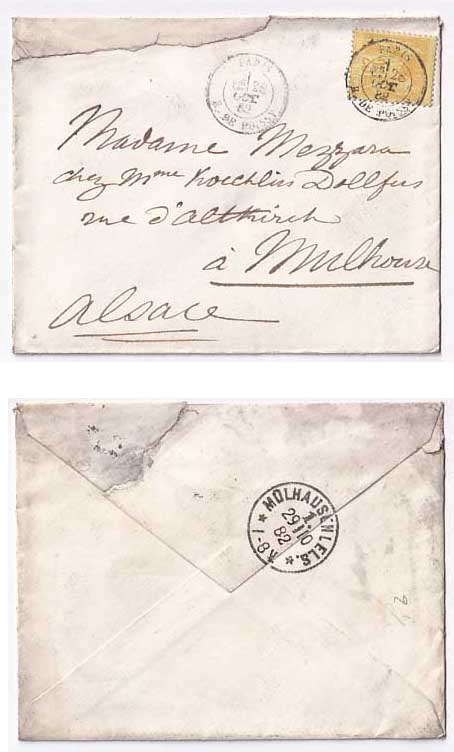 PARIS
28
OCT
82
R. DE POISSY
PARIS
28
OCT
82
R. DE POISSY
Madame Mezzara
chez Mme Koechlin Dollfus
rue d'altkirch
à Mulhouse
Alsace
MÜLHAUSEN I. ELS.
29 10
82
* 8-1 *